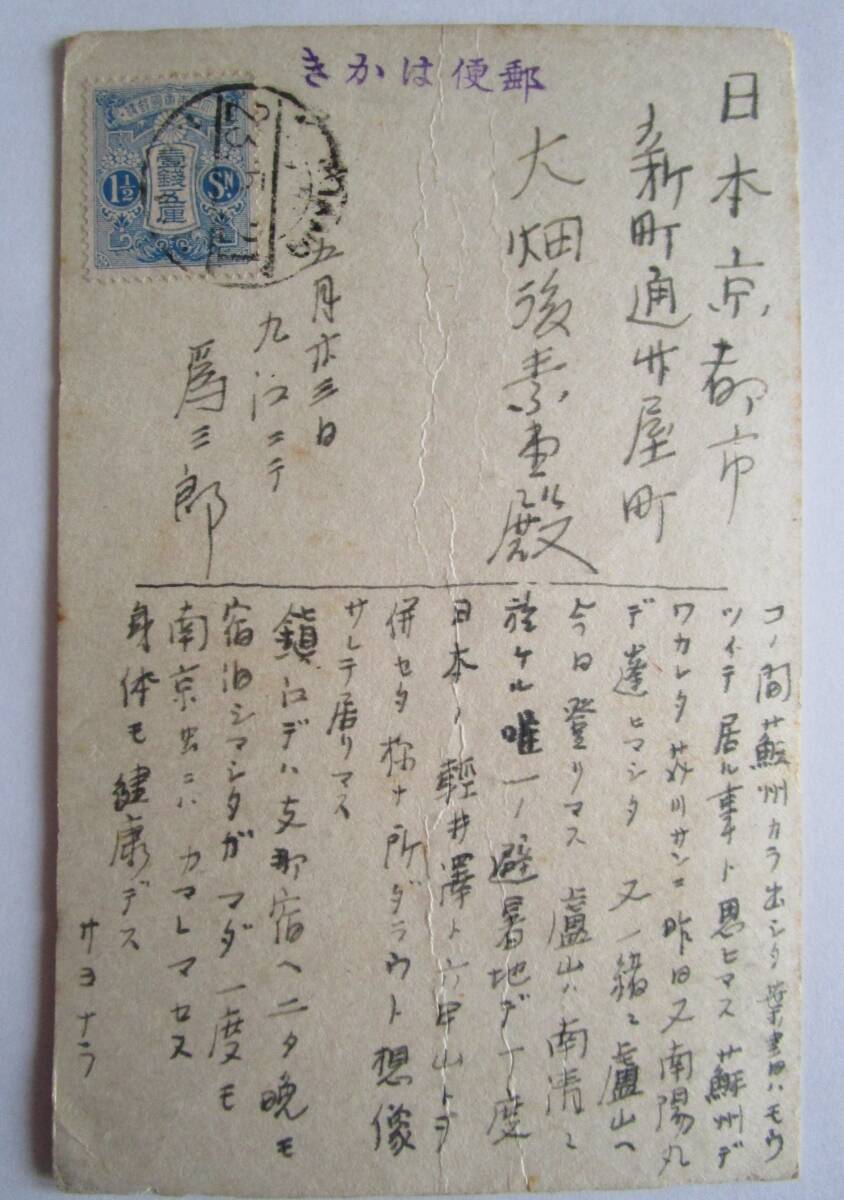 郵便はかき
壹錢五厘
1½ Sn.
日本京都市
新町通竹屋町
大畑後素堂殿
五月廿三日
九江ニテ
爲三郎
コノ間蘇州カラ出シタ葉書ハモウ
ツイテ居ル事ト思ヒマス 蘇州デ
ワカレタ 川サンニ昨日又南陽丸
デ逢ヒマシタ 又一緒ニ盧山ヘ
今日登リマス 盧山ハ南清ニ
於ケル唯一ノ避暑地デ丁度
日本ノ輕井澤ト六甲山トヲ
併セタ様ナ所ダラウト想像
サレテ居リマス
鎮江デハ支那宿ヘ二タ晩モ
宿泊シマシタガマダ一度モ
南京虫ニハカマレマセヌ
身体モ健康デス
サヨナラ